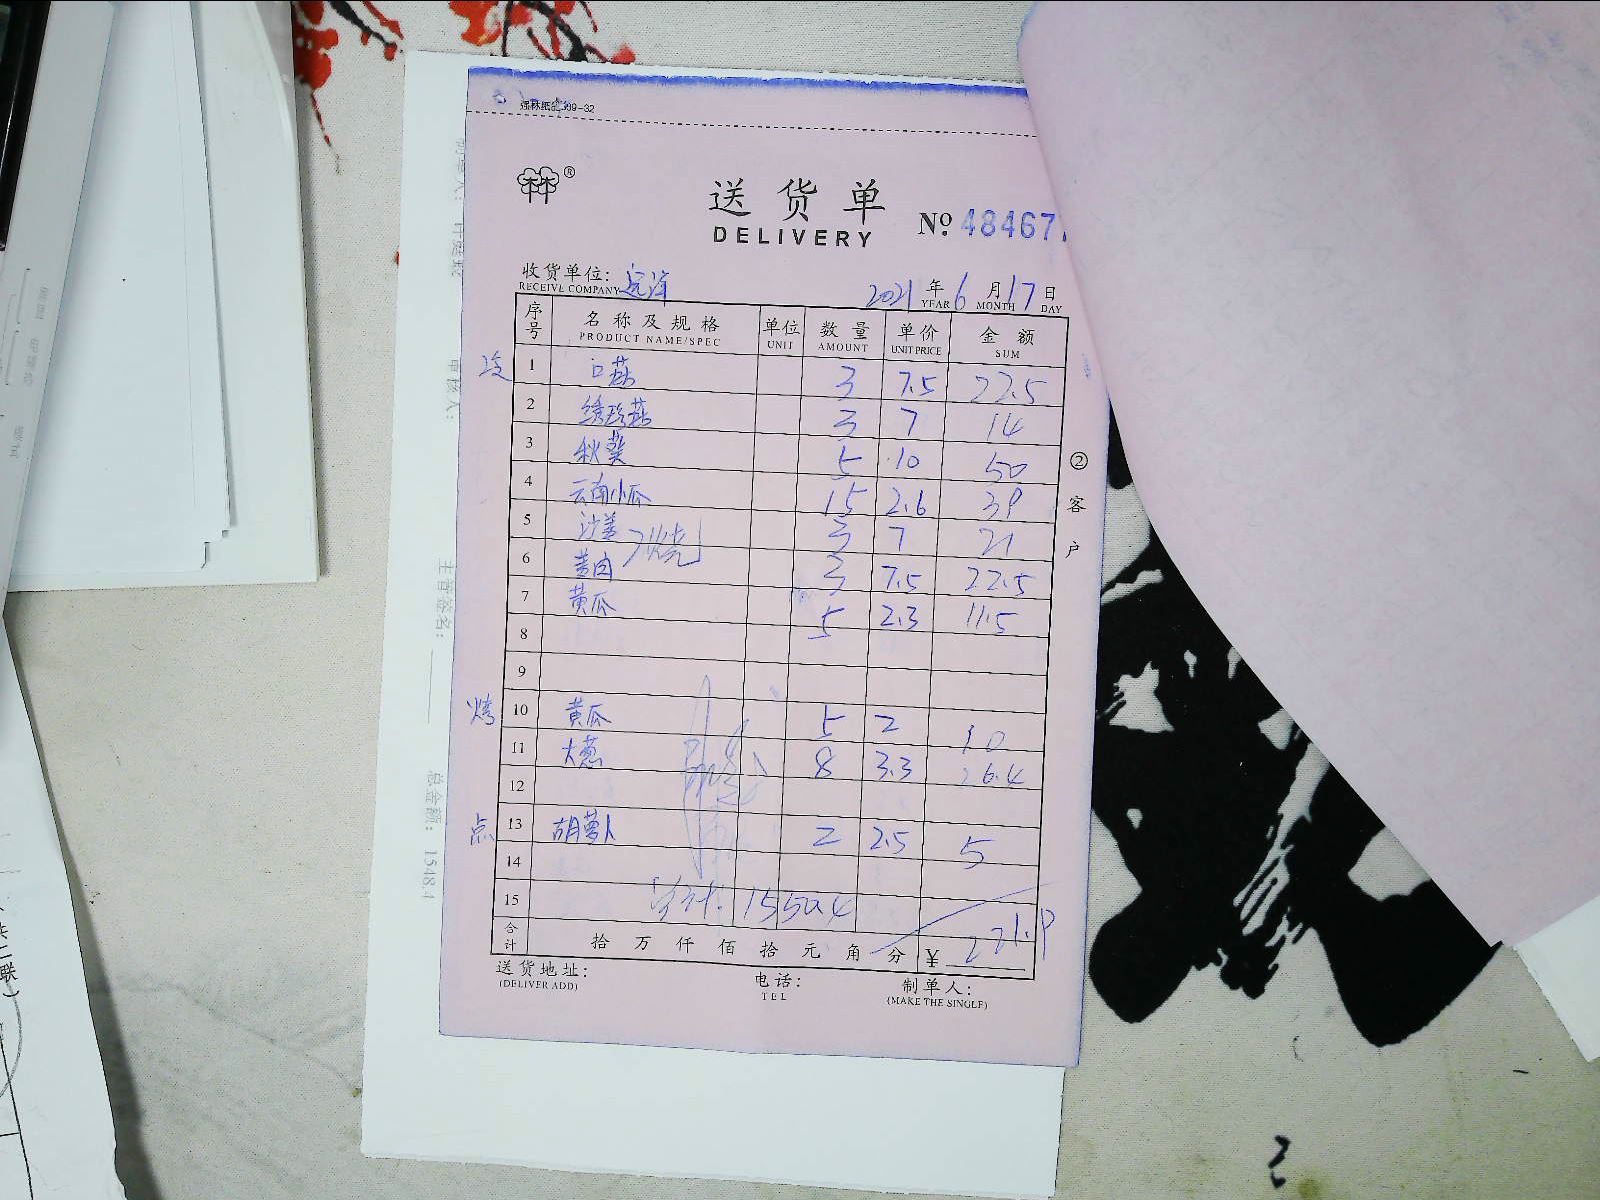 送货单
DELIVERY
№ 484677
收货单位: 远洋 2021 年 6 月 17 日
RECEIVE COMPANY YEAR MONTH DAY
序号 名称及规格 单位 数量 单价 金额
PRODUCT NAME/SPEC UNIT AMOUNT UNIT PRICE SUM
1 口菇 3 7.5 22.5
2 绣珍菇 3 7 14
3 秋葵 5 10 50
4 云南小瓜 15 2.6 39
5 沙姜 3 7 21
烧
6 黄肉 3 7.5 22.5
7 黄瓜 5 2.3 11.5
8
9
烤 10 黄瓜 5 2 10
11 大葱 8 3.3 26.4
12
点 13 胡萝卜 2 2.5 5
14
15 共计: 1550.4
合计 拾 万 仟 佰 拾 元 角 分 ¥ 221.9
送货地址: 电话: 制单人:
(DELIVER ADD) TEL (MAKE THE SINGLE)
② 客户
主管签名:
审核人:
总金额: 1548.4